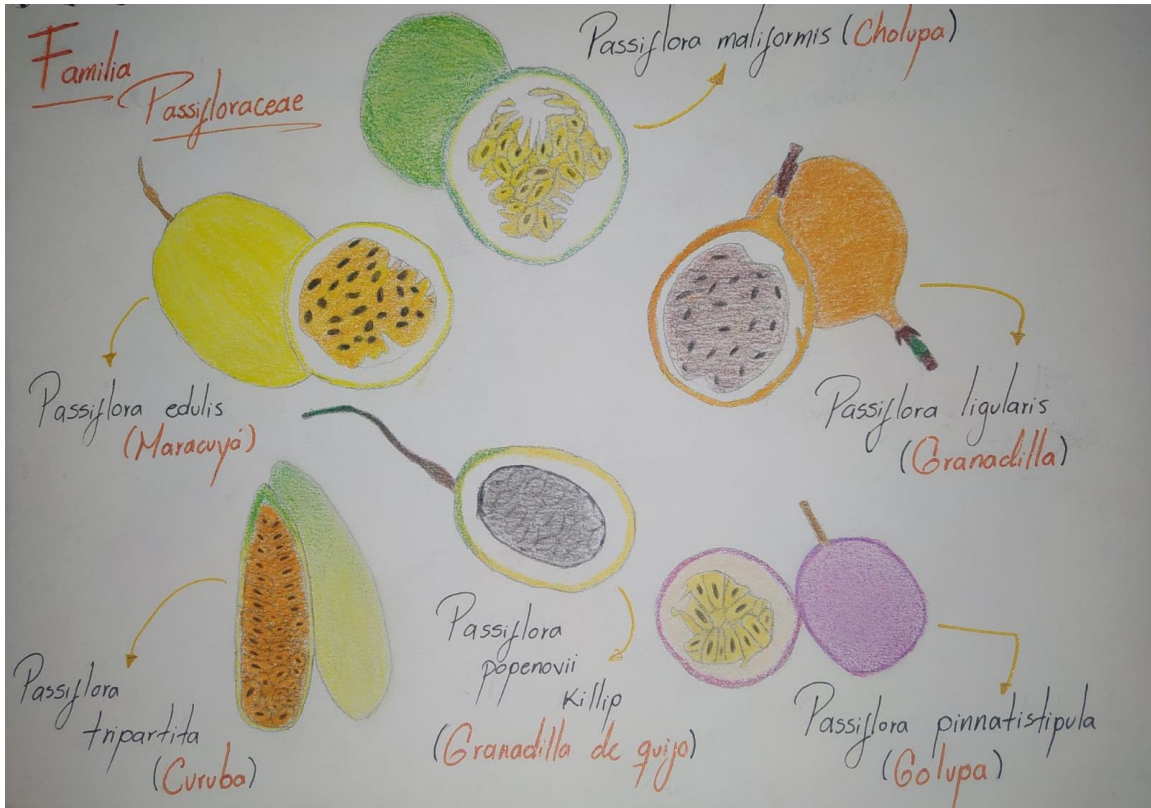 Familia
Passifloraceae
Passiflora maliformis (Cholupa)
Passiflora edulis
(Maracuyá)
Passiflora ligularis
(Granadilla)
Passiflora
tripartita
(Curuba)
Passiflora
popenovii
Killip
(Granadilla de quijo)
Passiflora pinnatistipula
(Golupa)